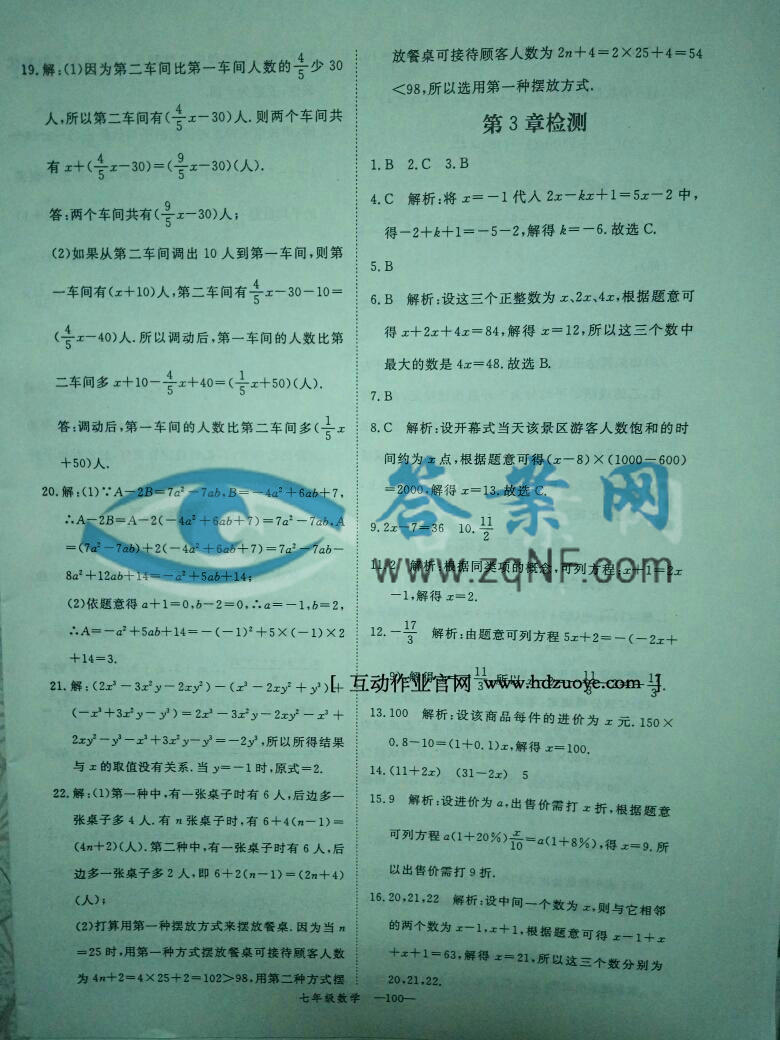 19.解:(1)因为第二车间比第一车间人数的4/5少30
人,所以第二车间有(4/5x-30)人.则两个车间共
有x+(4/5x-30)=(9/5x-30)(人).
答:两个车间共有(9/5x-30)人;
(2)如果从第二车间调出10人到第一车间,则第
一车间有(x+10)人,第二车间有4/5x-30-10=
(4/5x-40)人.所以调动后,第一车间的人数比第
二车间多x+10-4/5x+40=(1/5x+50)(人).
答:调动后,第一车间的人数比第二车间多(1/5x
+50)人.
20.解:(1)∵A-2B=7a²-7ab,B=-4a²+6ab+7,
∴A-2B=A-2(-4a²+6ab+7)=7a²-7ab,A
=(7a²-7ab)+2(-4a²+6ab+7)=7a²-7ab-
8a²+12ab+14=-a²+5ab+14;
(2)依题意得a+1=0,b-2=0,∴a=-1,b=2,
∴A=-a²+5ab+14=-(-1)²+5×(-1)×2
+14=3.
21.解:(2x³-3x²y-2xy²)-(x³-2xy²+y³)+
(-x³+3x²y-y³)=2x³-3x²y-2xy²-x³+
2xy²-y³-x³+3x²y-y³=-2y³,所以所得结果
与x的取值没有关系.当y=-1时,原式=2.
22.解:(1)第一种中,有一张桌子时有6人,后边多一
张桌子多4人.有n张桌子时,有6+4(n-1)=
(4n+2)(人).第二种中,有一张桌子时有6人,后
边多一张桌子多2人,即6+2(n-1)=(2n+4)
(人);
(2)打算用第一种摆放方式来摆放餐桌.因为当n
=25时,用第一种方式摆放餐桌可接待顾客人数
为4n+2=4×25+2=102>98,用第二种方式摆
放餐桌可接待顾客人数为2n+4=2×25+4=54
<98,所以选用第一种摆放方式.
第3章检测
1.B 2.C 3.B
4.C 解析:将x=-1代人2x-kx+1=5x-2中,
得-2+k+1=-5-2,解得k=-6.故选C.
5.B
6.B 解析:设这三个正整数为x、2x、4x,根据题意可
得x+2x+4x=84,解得x=12,所以这三个数中
最大的数是4x=48.故选B.
7.B
8.C 解析:设开幕式当天该景区游客人数饱和的时
间约为x点,根据题意可得(x-8)×(1000-600)
=2000,解得x=13.故选C.
9.2x-7=36 10.11/2
11.2 解析:根据同类项的概念,可列方程:x+1=2x
-1,解得x=2.
12.-17/3 解析:由题意可列方程5x+2=-(-2x+
13.100 解析:设该商品每件的进价为x元.150×
0.8-10=(1+0.1)x,解得x=100.
14.(11+2x) (31-2x) 5
15.9 解析:设进价为a,出售价需打x折,根据题意
可列方程a(1+20%)x/10=a(1+8%),得x=9.所
以出售价需打9折.
16.20,21,22 解析:设中间一个数为x,则与它相邻
的两个数为x-1,x+1,根据题意可得x-1+x
+x+1=63,解得x=21,所以这三个数分别为
20,21,22.
七年级数学 —100—
答案网
www.zqNF.com
[ 互动作业官网 www.hdzuoye.com ]